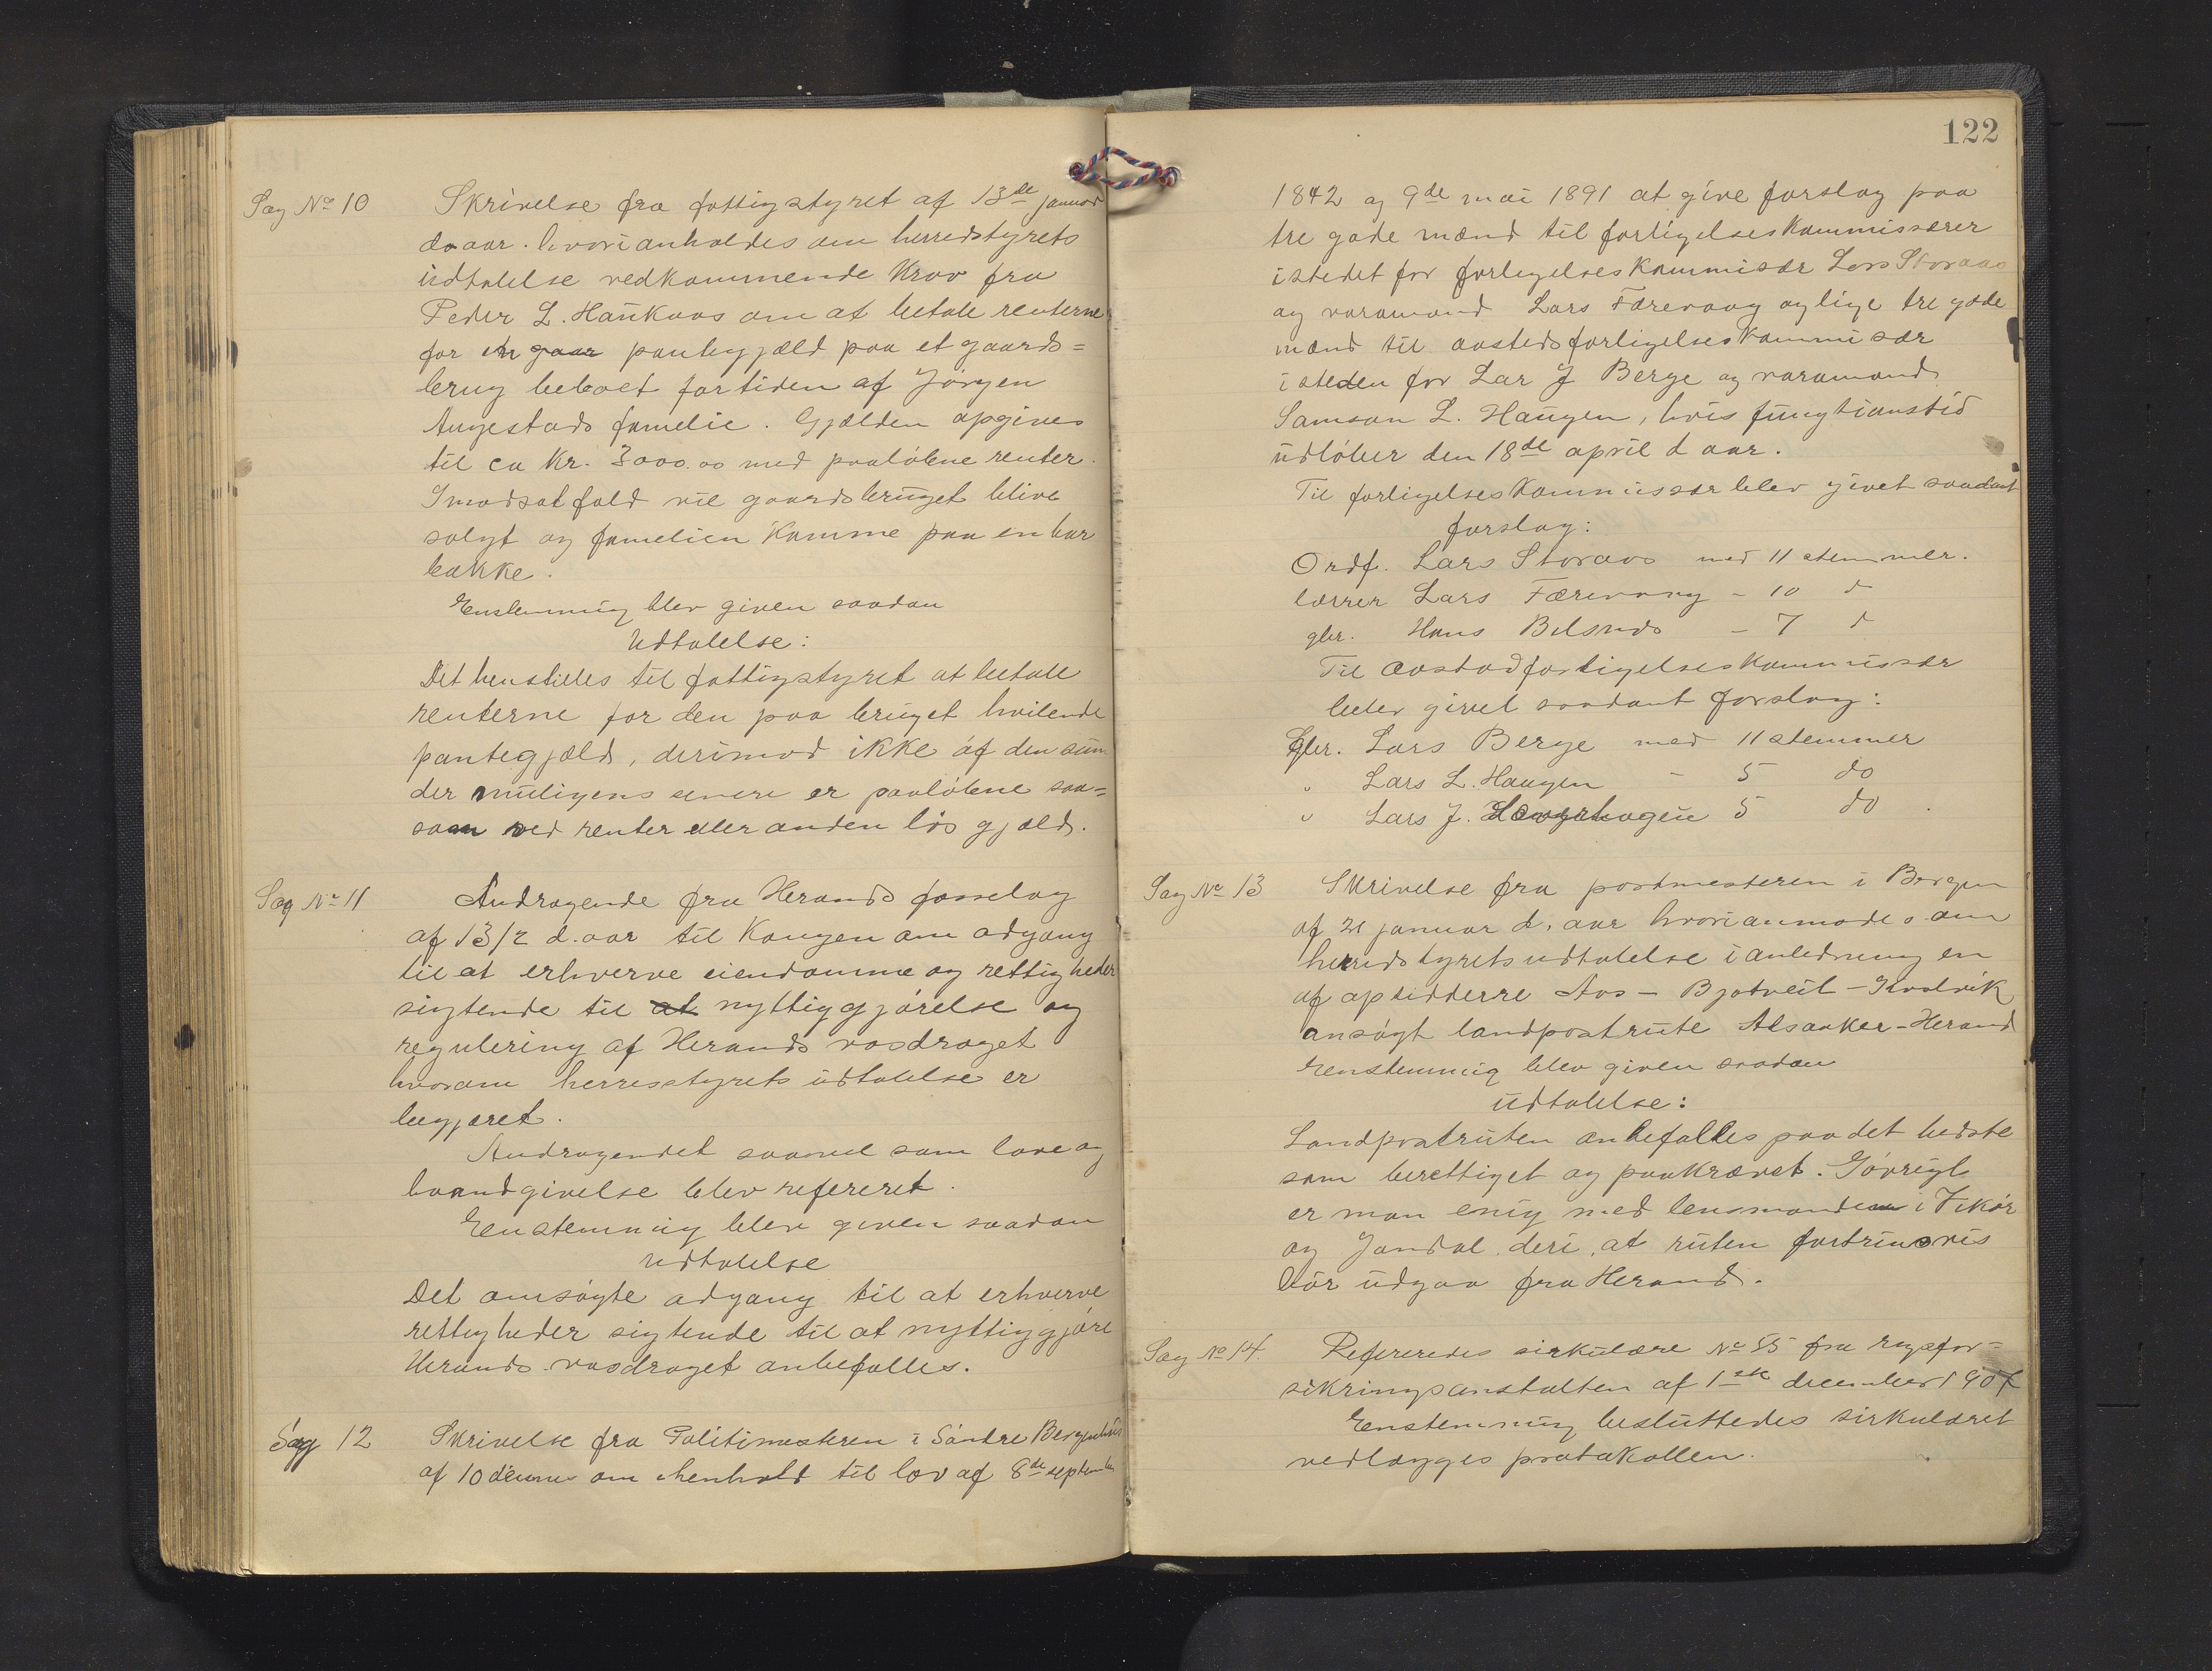 Sag No 10 Skrivelse fra fattigstyret af 13de januar
d. aar. hvori anholdes om herredstyrets
udtalelse vedkommende Krav fra
Peder L. Haukaas om at betale renterne
for en gaar pantegjæld paa et gaards=
brug beboet for tiden af Jörgen
Augestads familie. Gjælden opgives
til ca Kr. 3000.00 med paalöbne renter.
I modsat fald vil gaardsbruget blive
solgt og familien Komme paa en bar
bakke.
Enstemmig blev given saadan
Udtalelse:
Det henstilles til fattigstyret at betale
renterne for den paa bruget hvilende
pantegjæld, derimod ikke af den sum
der muligens senere er paalöbne saa=
som ved renter eller anden lös gjæld.
Sag No 11 Andragende fra Herands fosselag
af 13/2 d. aar til Kongen om adgang
til at erhverve eiendomme og rettigheder
sigtende til at nyttiggjörelse og
regulering af Herands vasdraget
hvorom herresstyrets udtalelse er
begjæret.
Andragendet saavel som love og
kundgivelse blev refereret.
Eenstemmig blev given saadan
Udtalelse
Det omsögte adgang til at erhverve
rettigheder sigtende til at nyttiggjöre
Herands vasdraget anbefalles.
Sag 12 Skrivelse fra Politimesteren i Söndre Bergenhus
af 10 dennes om ihenhold til lov af 8de september
122
1842 og 9de mai 1891 at give forslag paa
tre gode mænd til forligelseskommissærer
istedet for forligelseskommisær Lars Storaas
og varamand Lars Færevaag og lige tre gode
mænd til aastedsforligelseskommisær
isteden for Lar J Berge og varamand
Samson L. Haugen, hvis fungtionstid
udlöber den 18de april d aar.
Til forligelseskommissær blev givet saadant
forslag:
Ordf. Lars Storaas med 11 stemmer.
lærrer Lars Færevaag - 10 d
gbr. Hans Belsnds - 7 d
Til aastadforligelseskommissær
blev givet saadant forslag:
Gbr. Lars Berge med 11 stemmer
" Lars L. Haugen - 5 do
" Lars J. 5 do.
Sag No 13 Skrivelse fra postmesteren i Bergen
af 21 januar d. aar hvori anmodes om
herredstyrets udtalelse i anledning en
af opsidderre Aas - Bjotveit - Svolvik
ansögt landpostrute Alsaaker - Herand
Eenstemmig blev given saadan
udtalelse:
Landpostruten anbefalles paa det bedste
som berettiget og paakrævet. Jövrigt
er man enig med lensmanden i Vikör
og Jondal deri, at ruten fortrinsvis
bör udgaa fra Herand.
Sag No 14 Refereredes sirkulære No 55 fra rigsfor-
sikringsanstalten af 1ste december 1907
Eenstemmig besluttedes sirkulæret
vedlægges protokollen.